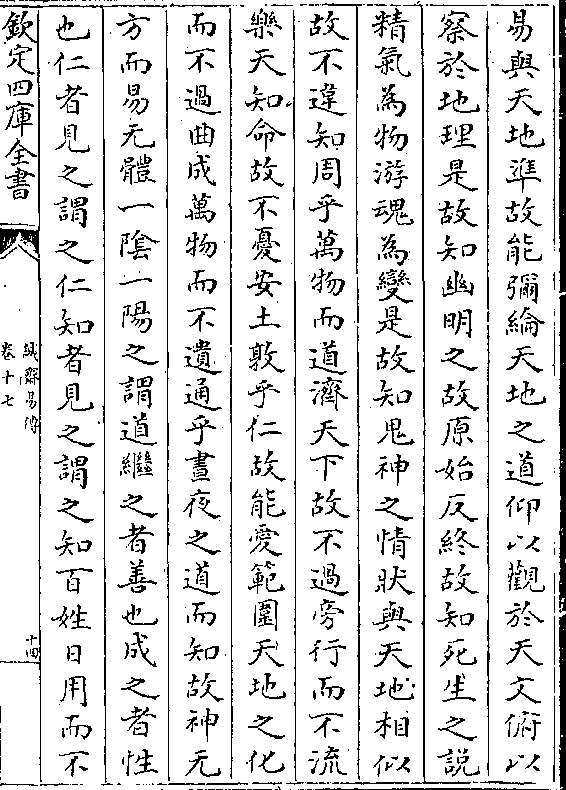 易與天地準故能彌綸天地之道仰以觀於天文俯以
察於地理是故知幽明之故原始反終故知死生之說
精氣為物游魂為變是故知鬼神之情狀與天地相似
故不違知周乎萬物而道濟天下故不過旁行而不流
樂天知命故不憂安土敦乎仁故能愛範圍天地之化
而不過曲成萬物而不遺通乎晝夜之道而知故神无
方而易无體一陰一陽之謂道繼之者善也成之者性
也仁者見之謂之仁知者見之謂之知百姓日用而不
欽定四庫全書
誠齋易傳
卷十七
十四